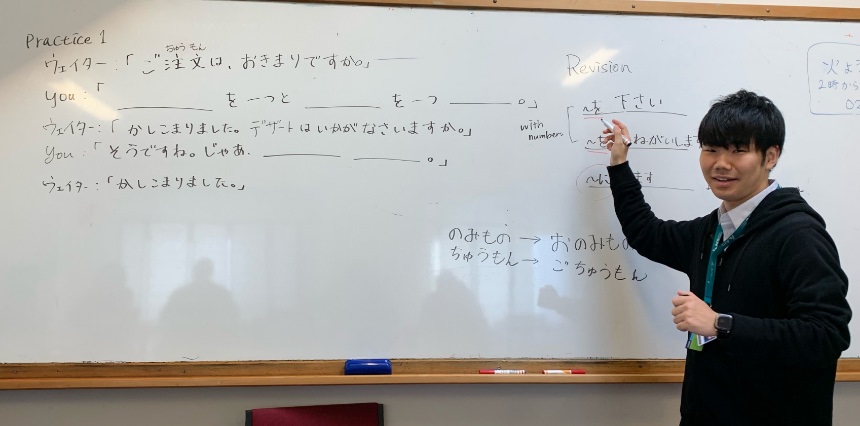 Practice 1
ちゅうもん
ウェイター：「ご注文は、おきまりですか。」
You：「________を一つと________を一つ________。」
ウェイター：「かしこまりました。デザートはいかがなさいますか。」
You：「そうですね。じゃあ、________ ________。」
ウェイター：「かしこまりました。」
Revision
with number
〜を 下さい
〜を ねがいします
〜に ます
のみもの → おのみもの
ちゅうもん → ごちゅうもん
火よ
2時から